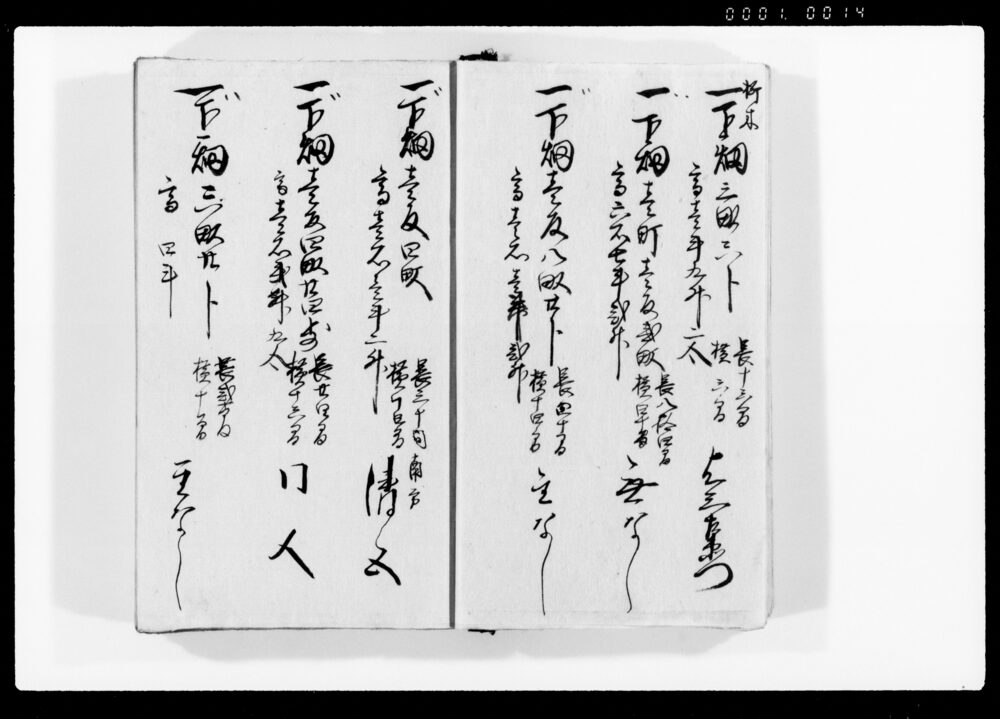 一下畑三畝六卜
高壱斗九升二合
長十六間
横六間
与三左衛門
一下畑壱町壱反弐畝
高六石七斗弐升
長八拾四間
横四十間
主なし
一下畑壱反八畝廿卜
高壱石壱斗弐升
長四十間
横十四間
主なし
一下畑壱反四畝
高壱石壱斗二升
長三十間
横十四間
南方
清五
一下畑壱反四畝廿四歩
高壱石
長廿四間
横十六間
同人
一下畑六畝廿卜
高四斗
長弐十間
横十間
主なし
0001.0014